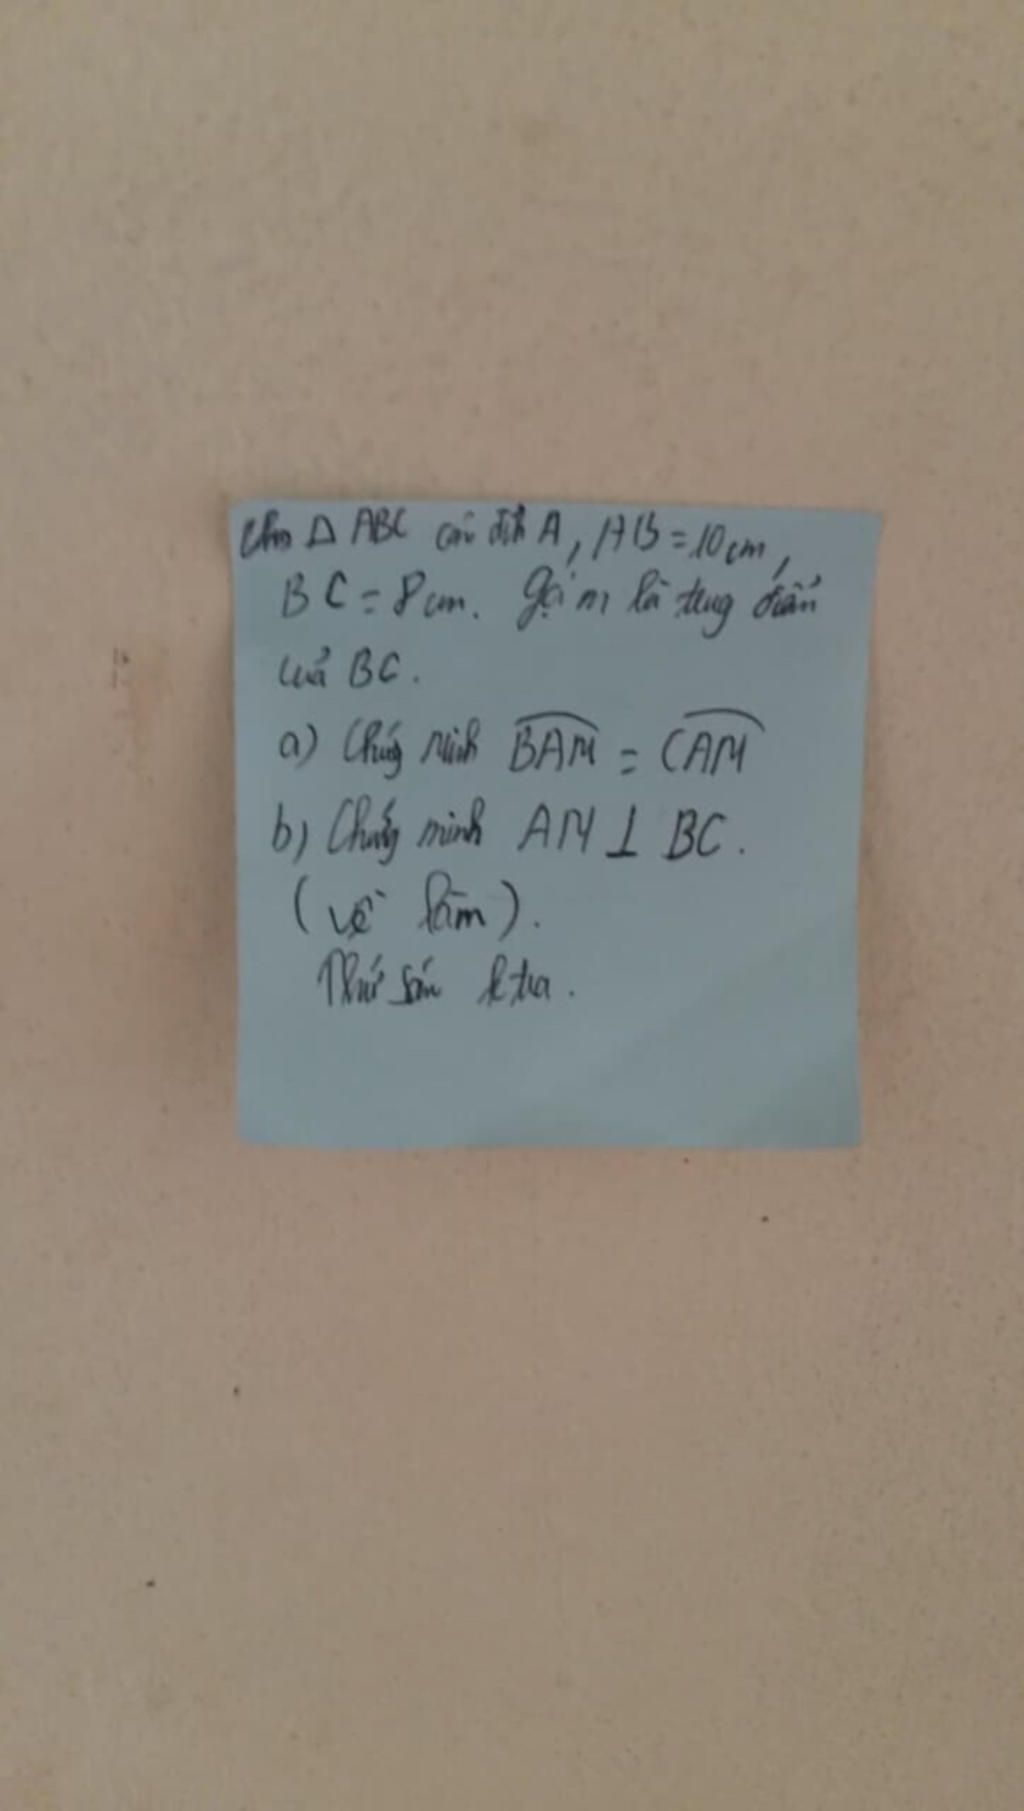 Cho Δ ABC cân đỉnh A, AB = 10 cm,
BC = 8 cm. Gọi m là trung điểm
của BC.
a) Chứng minh BAM = CAM
b) Chứng minh AM ⊥ BC.
(về làm).
Thứ sáu ktra.